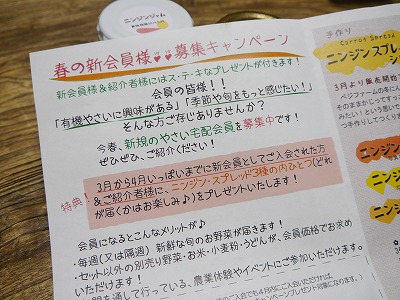 ニンジンジャム
春の新会員様♥♥募集キャンペーン
新会員様&紹介者様にはス・テ・キなプレゼントが付きます!
会員の皆様!!
「有機やさいに興味がある」「季節や旬をもっと感じたい!」
そんな方ご存じありませんか?
今春、新規のやさい宅配会員を募集中です!
ぜひぜひ、ご紹介ください!
特典:
3月から4月いっぱいまでに新会員としてご入会された方
&ご紹介者様に、ニンジン・スプレッド3種の内ひとつ(どれ
が届くかはお楽しみ♪)をプレゼントいたします!
会員になるとこんなメリットが♪
・毎週(又は隔週) 新鮮な旬のお野菜が届きます!
・セット以外の別売り野菜・お米・小麦粉・うどんが、会員価格でお求め
いただけます!
間を通して行っている、農業体験やイベントにご参加いただけます。
手作り
Carrot Spread
ニンジンスプレ
3月より販売開始
ニンジン
ニンジン
ニンジン